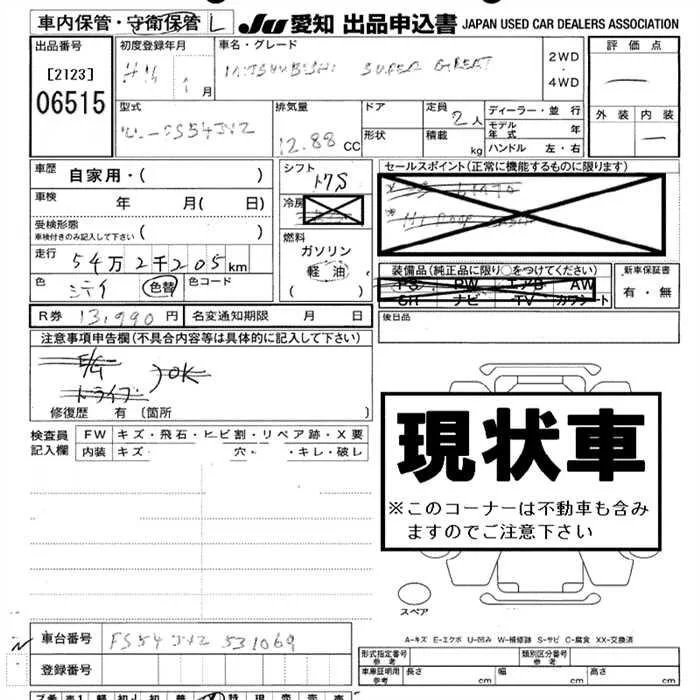 車内保管・守衛保管 L JU 愛知 出品申込書 JAPAN USED CAR DEALERS ASSOCIATION
出品番号
[2123]
06515
初度登録年月
月
車名・グレード
MITSUBISHI SUPER GREAT
2WD
・
4WD
評価点
外装 内装
型式
排気量
12.88 CC
ドア
形状
定員 2人
積載 kg
ディーラー・並行
モデル年式 年
ハンドル 左・右
車歴 自家用・( )
車検 年 月( 日)
受検形態
車検付きのみ記入して下さい ( )
走行 54万2千205km
色 色替 色コード
シフト
冷房
燃料
ガソリン
軽油
( )
セールスポイント(正常に機能するものに限ります)
装備品(純正品に限り○をつけてください)
PS PW エアB AW
SR ナビ TV カワシート
新車保証書
有・無
R券 13,990円 名変通知期限 月 日
後日品
注意事項申告欄(不具合内容等は具体的に記入して下さい)
E/G
OK
修復歴 有 〔箇所 〕
検査員記入欄
FW キズ・飛石・ヒビ割・リペア跡・X要
内装 キズ・ 穴・ ・キレ・破レ
現状車
※このコーナーは不動車も含み
ますのでご注意下さい
スペア
A-キズ E-エクボ U-凹み W-補修跡 S-サビ C-腐食 XX-交換済
車台番号 FS54JVZ 531069
登録番号
形式指定番号 参考
類別区分番号 参考
車庫証明用 参考 長さ cm 幅 cm 高さ cm